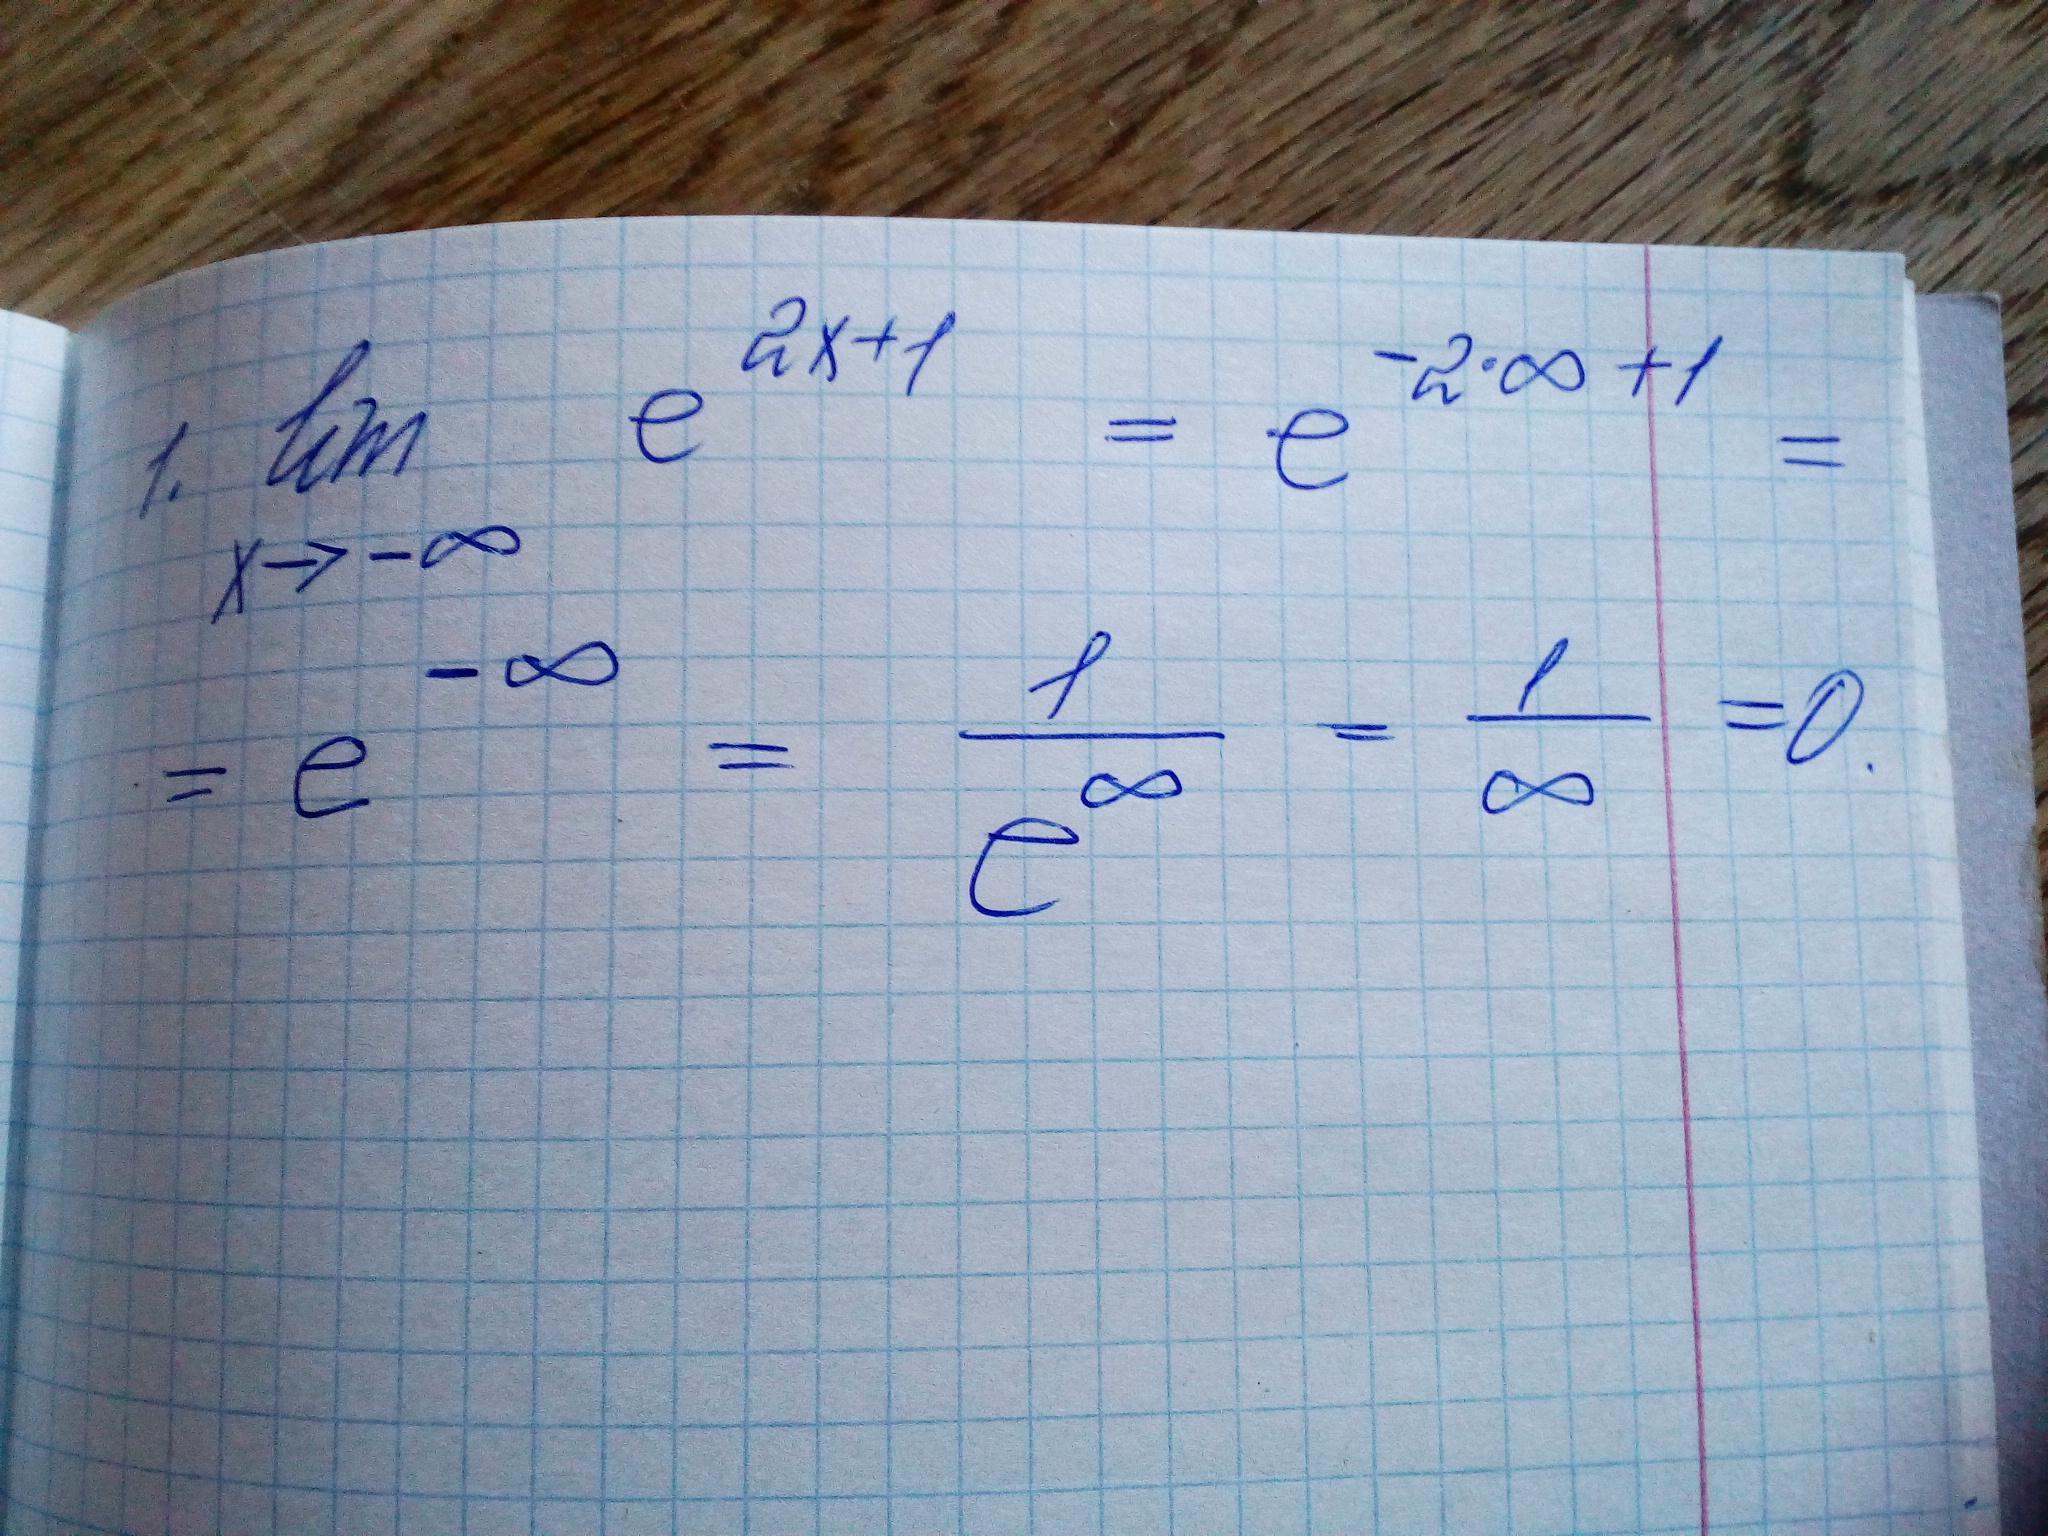 1. lim e^{2x+1} = e^{-2·∞+1} =
x→-∞
= e^{-∞} = 1/e^{∞} = 1/∞ = 0.